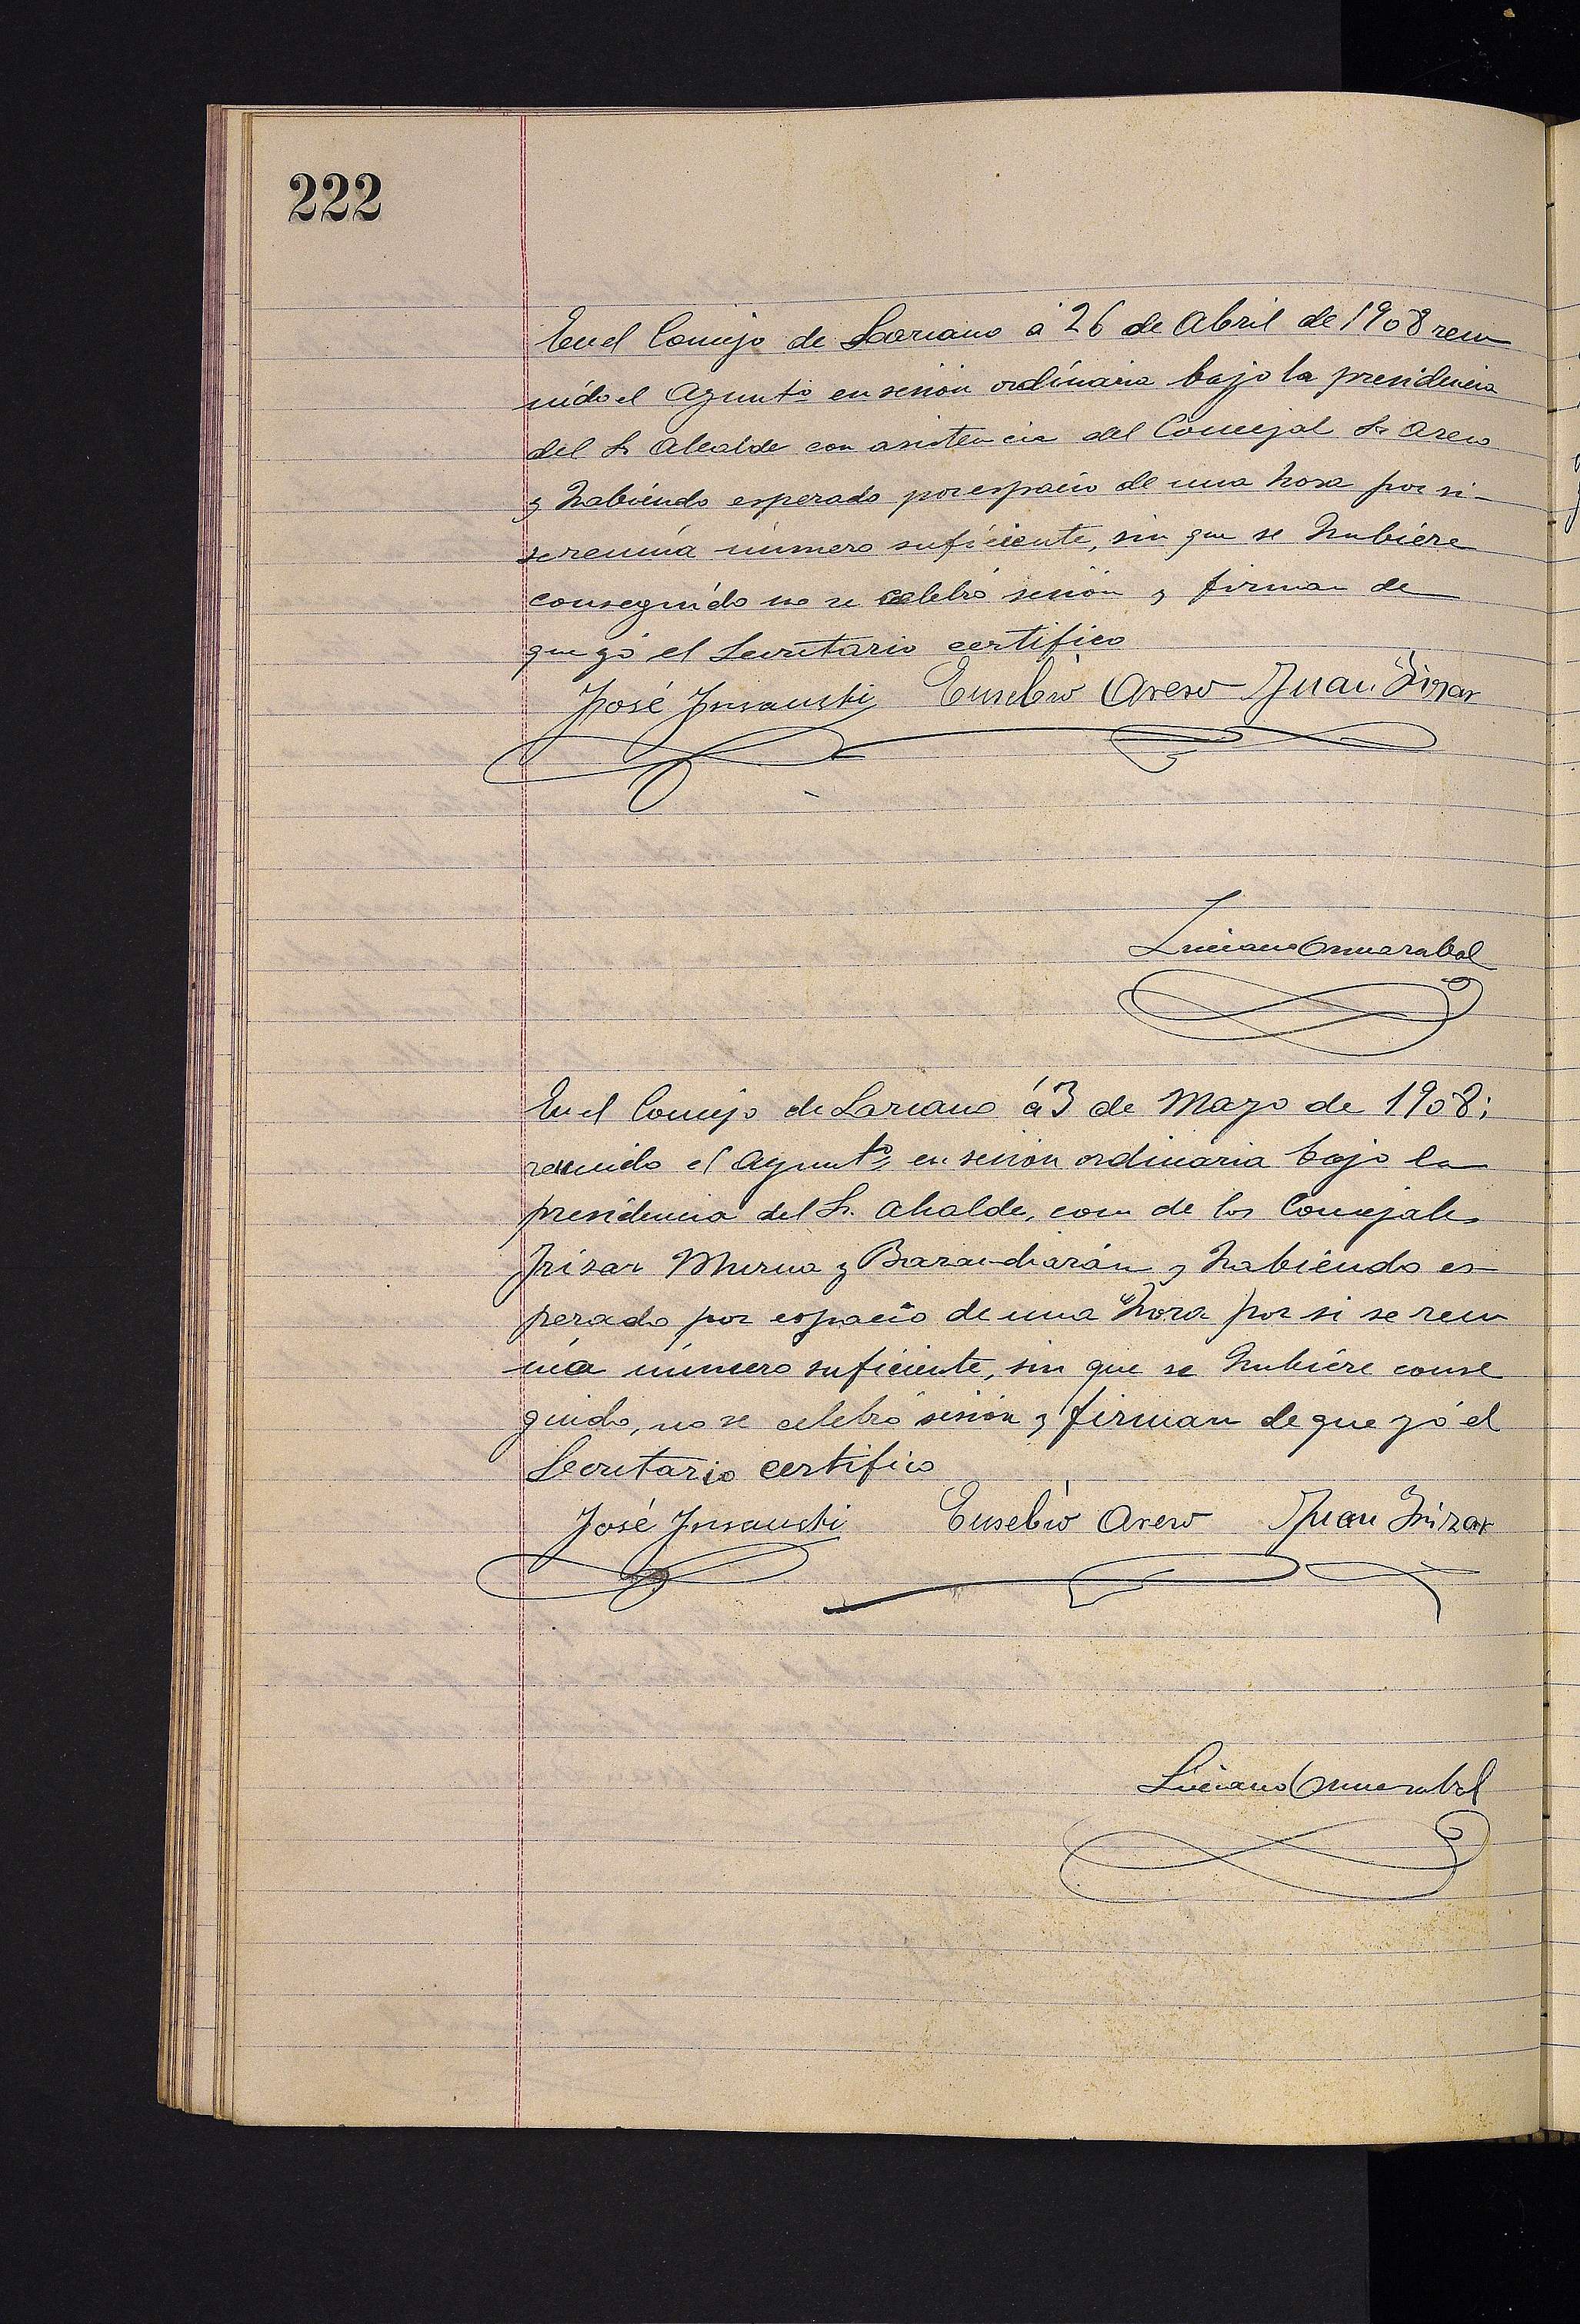 222
En el Concejo de Lazcano á 26 de Abril de 1908 reu
nido el Ayunto en sesión ordinaria bajo la presidencia
del Sr Alcalde con asistencia del Concejal Sr Areso
y habiendo esperado por espacio de una hora por si
se reunía número suficiente, sin que se hubiere
conseguido no se celebró sesión y firman de
que yó el Secretario certifico
José Insausti Eusebio Areso Juan Irizar
Luciano Omarabal
En el Concejo de Lazcano á 3 de Mayo de 1908;
reunido el Ayunto, en sesión ordinaria bajo la
presidencia del Sr. Alcalde, con de los Concejales
Irizar Murua y Barandiarán y habiendo es
perado por espacio de una hora por si se reu
nía número suficiente, sin que se hubiere conse
guido, no se celebró sesión y firman de que yó el
Secretario certifico
José Insausti Eusebio Areso Juan Irizar
Luciano